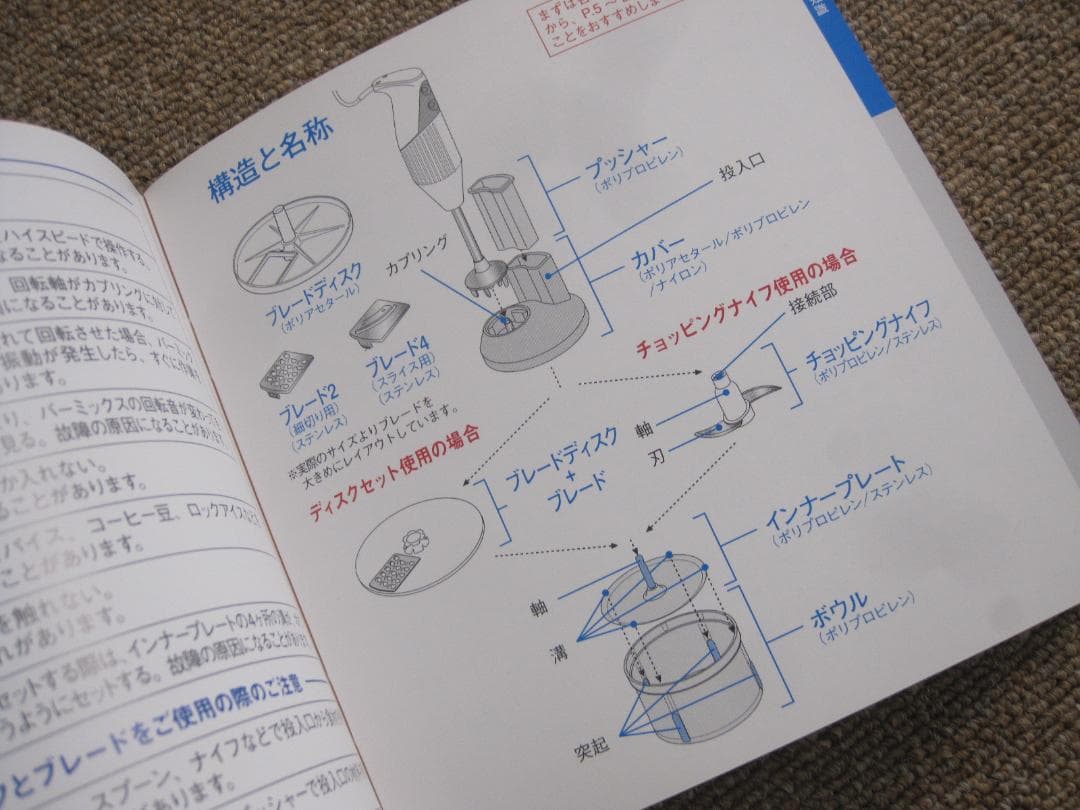 ハイスピードで操作する、
なることがあります。
回転軸がカブリングに対して
になることがあります。
れて回転させた場合、バーミック
振動が発生したら、すぐに
ります。
り、バーミックスの回転音が
見る。故障の原因になることがあります。
か入れない。
ることがあります。
パイス、コーヒー豆、ロックアイス
ことがあります。
を触れない。
れがあります。
セットする際は、インナープレートの4ヶ所の溝が、
うようにセットする。故障の原因になることがあります
クとブレードをご使用の際のご注意
スプーン、ナイフなどで投入口から
プッシャーで投入口の
まずは
から、P.5～
ことをおすすめしま
構造と名称
プッシャー
(ポリプロピレン)
投入口
カブリング
カバー
(ポリアセタール/ポリプロピレン
/ナイロン)
ブレードディスク
(ポリアセタール)
ブレード4
(スライス用)
(ステンレス)
ブレード2
(細切り用)
(ステンレス)
※実際のサイズよりブレードを
大きめにレイアウトしています。
チョッピングナイフ使用の場合
接続部
チョッピングナイフ
(ポリプロピレン/ステンレス)
軸
刃
ディスクセット使用の場合
ブレードディスク
+
ブレード
インナープレート
(ポリプロピレン/ステンレス)
軸
溝
ボウル
(ポリプロピレン)
突起